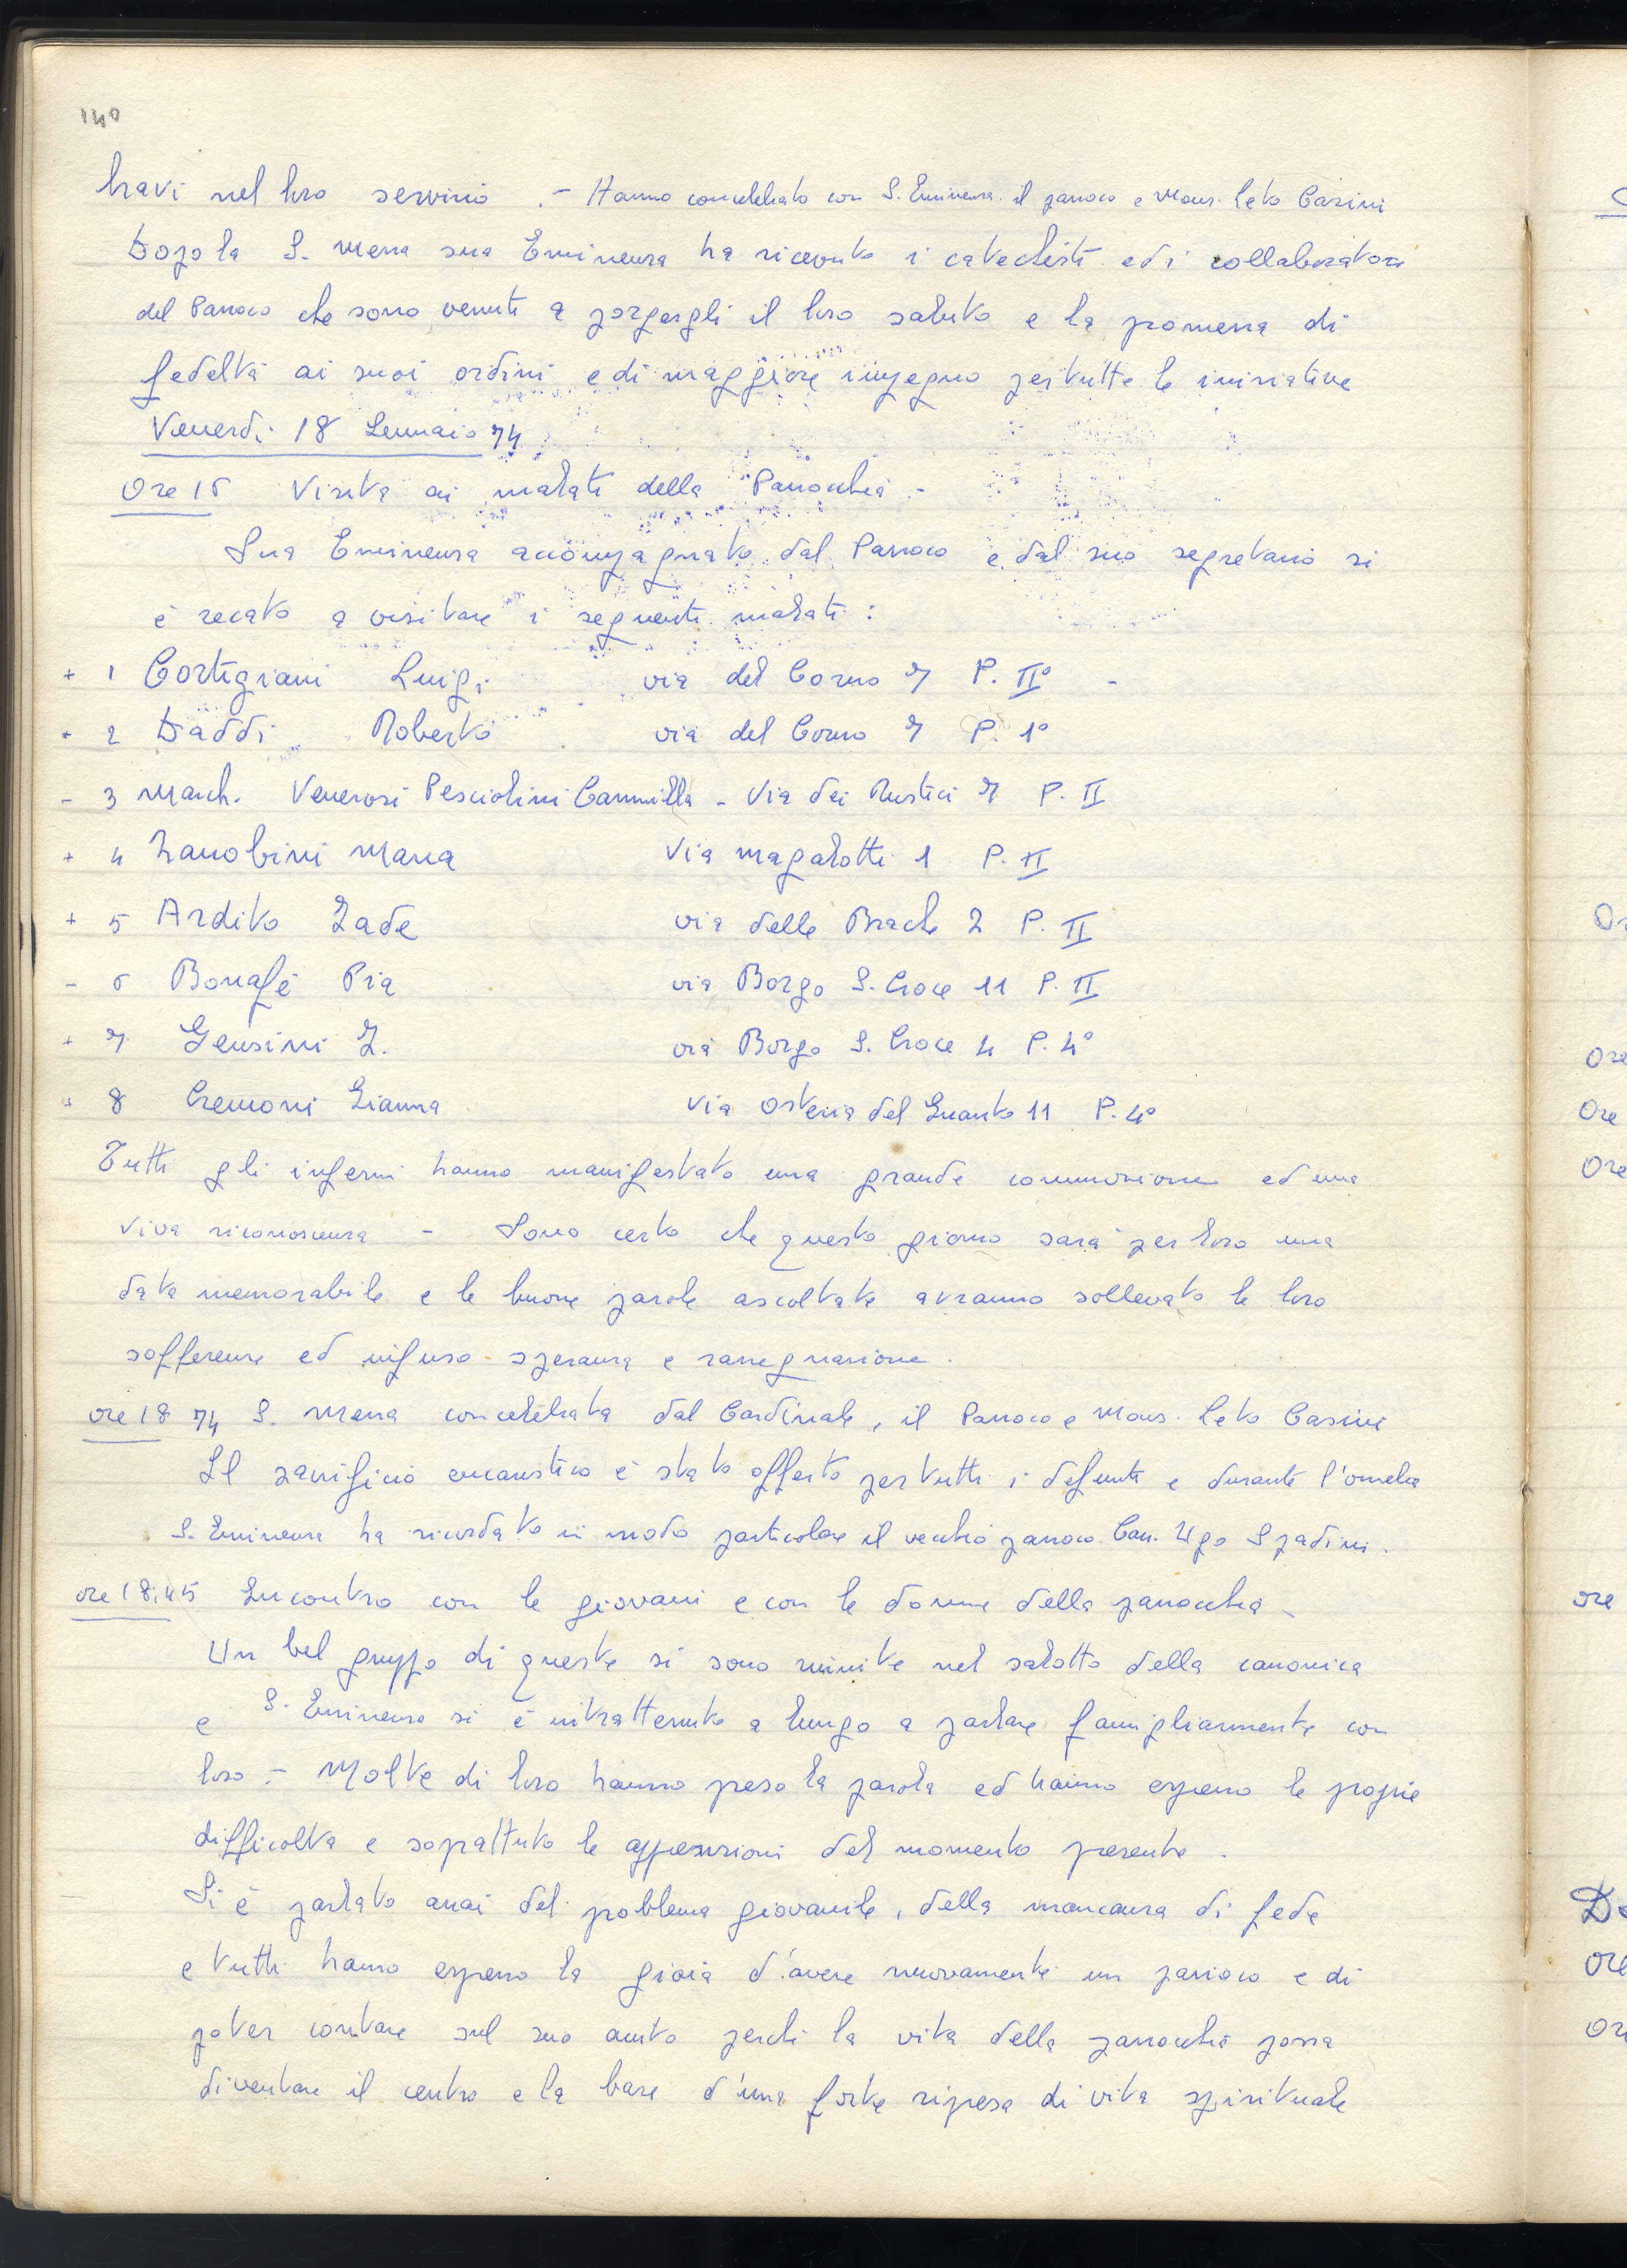 140
bravi nel loro servizio .- Hanno concelebrato con S. Eminenza il parroco e Mons. Leto Casini
Dopo la S. Messa sua Eminenza ha ricevuto i catechisti ed i collaboratori
del Parroco che sono venuti a porgergli il loro saluto e la promessa di
fedeltà ai suoi ordini e di maggiore impegno per tutte le iniziative
Venerdi 18 Gennaio 74
Ore 16 Visita ai malati della Parrocchia -
Sua Eminenza accompagnato dal Parroco e dal suo segretario si
è recato a visitare i seguenti malati :
+ 1 Cortigiani Luigi via del Corno 7 P. II° -
+ 2 Daddi Roberto via del Corno 7 P. 1°
- 3 March. Venerosi Pesciolini Cammilla - Via dei Rustici 7 P. II
+ 4 Zanobini Maria Via Magalotti 1 P. II
+ 5 Ardito Iade via delle Brache 2 P. II
- 6 Bonafé Pia via Borgo S. Croce 11 P. II
+ 7 Gensini I. via Borgo S. Croce 4 P. 4°
+ 8 Cremoni Gianna Via Osteria del Guanto 11 P. 4°
Tutti gli infermi hanno manifestato una grande commozione ed una
viva riconoscenza - Sono certo che questo giorno sarà per loro una
data memorabile e le buone parole ascoltate avranno sollevato le loro
sofferenze ed infuso speranza e rassegnazione .
ore 18 74 S. Messa concelebrata dal Cardinale, il Parroco e Mons. Leto Casini
Il sacrificio eucaristico è stato offerto per tutti i defunti e durante l'omelia
S. Eminenza ha ricordato in modo particolare il vecchio parroco Can. Ugo Spadini .
ore 18,45 Incontro con le giovani e con le donne della parrocchia -
Un bel gruppo di queste si sono riunite nel salotto della canonica
e S. Eminenza si è intrattenuto a lungo a parlare famigliarmente con
loro .- Molte di loro hanno preso la parola ed hanno espresso le proprie
difficoltà e soprattutto le apprensioni del momento presente .
Si è parlato assai del problema giovanile, della mancanza di fede
e tutti hanno espresso la gioia d'avere nuovamente un parroco e di
poter contare sul suo aiuto perché la vita della parrocchia possa
diventare il centro e la base d'una forte ripresa di vita spirituale